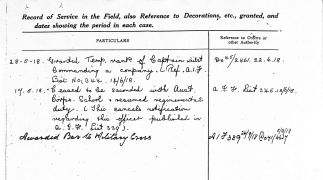 Record of Service in the Field, also Reference to Decorations, etc., granted, and
dates showing the period in each case.
PARTICULARS
Reference to Orders or
other Authority
28-5-18. Granted Temp. rank of Captain whilst
Commanding a company. (Ref. A.I.F.
List No. 344. 12/6/18.
17.5.18. Ceased to be seconded with Aust.
Corps. School & resumed regimental
duty. (This cancels notification
regarding this officer published in
a. I. F. List 339).
a. I. F. List 346
Awarded Bar to Military Cross
A I F 389